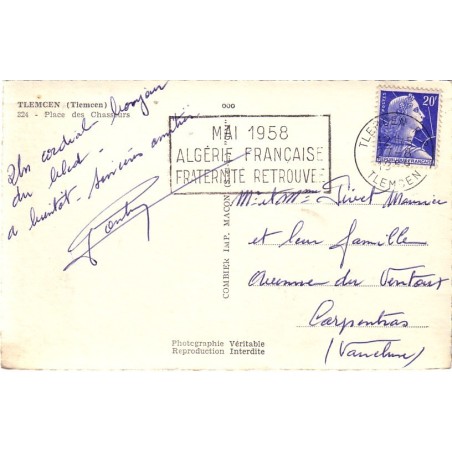 TLEMCEN (Tlemcen)
224 - Place des Chasseurs
Un cordial bonjour
du bled -
a bientôt - Sincères amitiés
MAI 1958
ALGÉRIE FRANÇAISE
FRATERNITÉ RETROUVÉE
20F
TLEMCEN
TLEMCEN
COMBIER IMP. MACON
Mr et Mme Maurice
et leur famille
Avenue du Ventoux
Carpentras
(Vaucluse)
Photographie Véritable
Reproduction Interdite